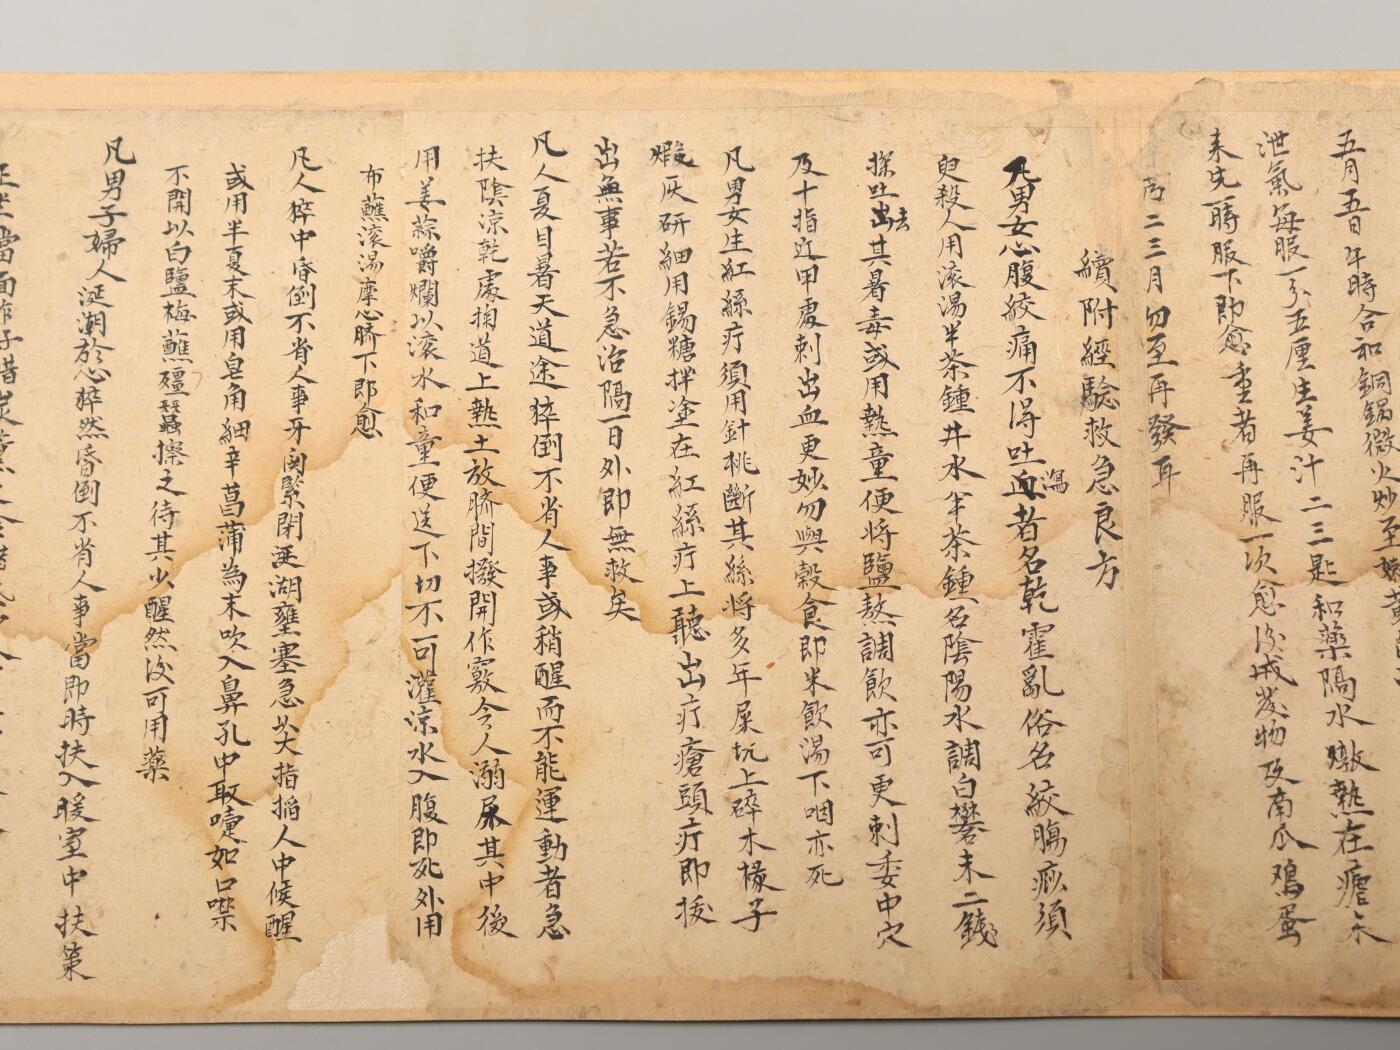 五月五日午時合和銅鍋微火炒至
泄氣每服一分五厘生姜汁二三匙和藥隔水燉熱在瘧未
来先一時服下即愈重者再服一次愈後戒發物及南瓜鷄蛋
二三月勿至再發耳
續附經驗救急良方
凡男女心腹絞痛不得吐瀉血者名乾霍亂俗名絞腸痧須
臾殺人用滚湯半茶鍾井水半茶鍾名陰陽水調白礬末二錢
探吐出去其暑毒或用熱童便將鹽熬調飲亦可更刺委中穴
及十指近甲處刺出血更妙勿與穀食即米飲湯下咽亦死
凡男女生紅絲疔須用針桃斷其絲將多年屎坑上碎木椽子
煅灰研細用錫糖拌塗在紅絲疔上聽出疔瘡頭疔即拔
出無事若不急治隔一日外即無救矣
凡人夏月暑天道途猝倒不省人事或稍醒而不能運動者急
扶陰凉乾處掬道上熱土放臍間撥開作竅令人溺尿其中後
用姜蒜嚼爛以滚水和童便送下切不可灌凉水入腹即死外用
布蘸滚湯摩心臍下即愈
凡人猝中昏倒不省人事牙関緊閉涎湖壅塞急以大指搯人中候醒
或用半夏末或用皂角細辛菖蒲為末吹入鼻孔中取嚏如口噤
不開以白鹽梅蘸殭蠶擦之待其少醒然後可用藥
凡男子婦人涎潮於心猝然昏倒不省人事當即時扶入暖室中扶策
正坐當面作子醋炭薰之令醋氣